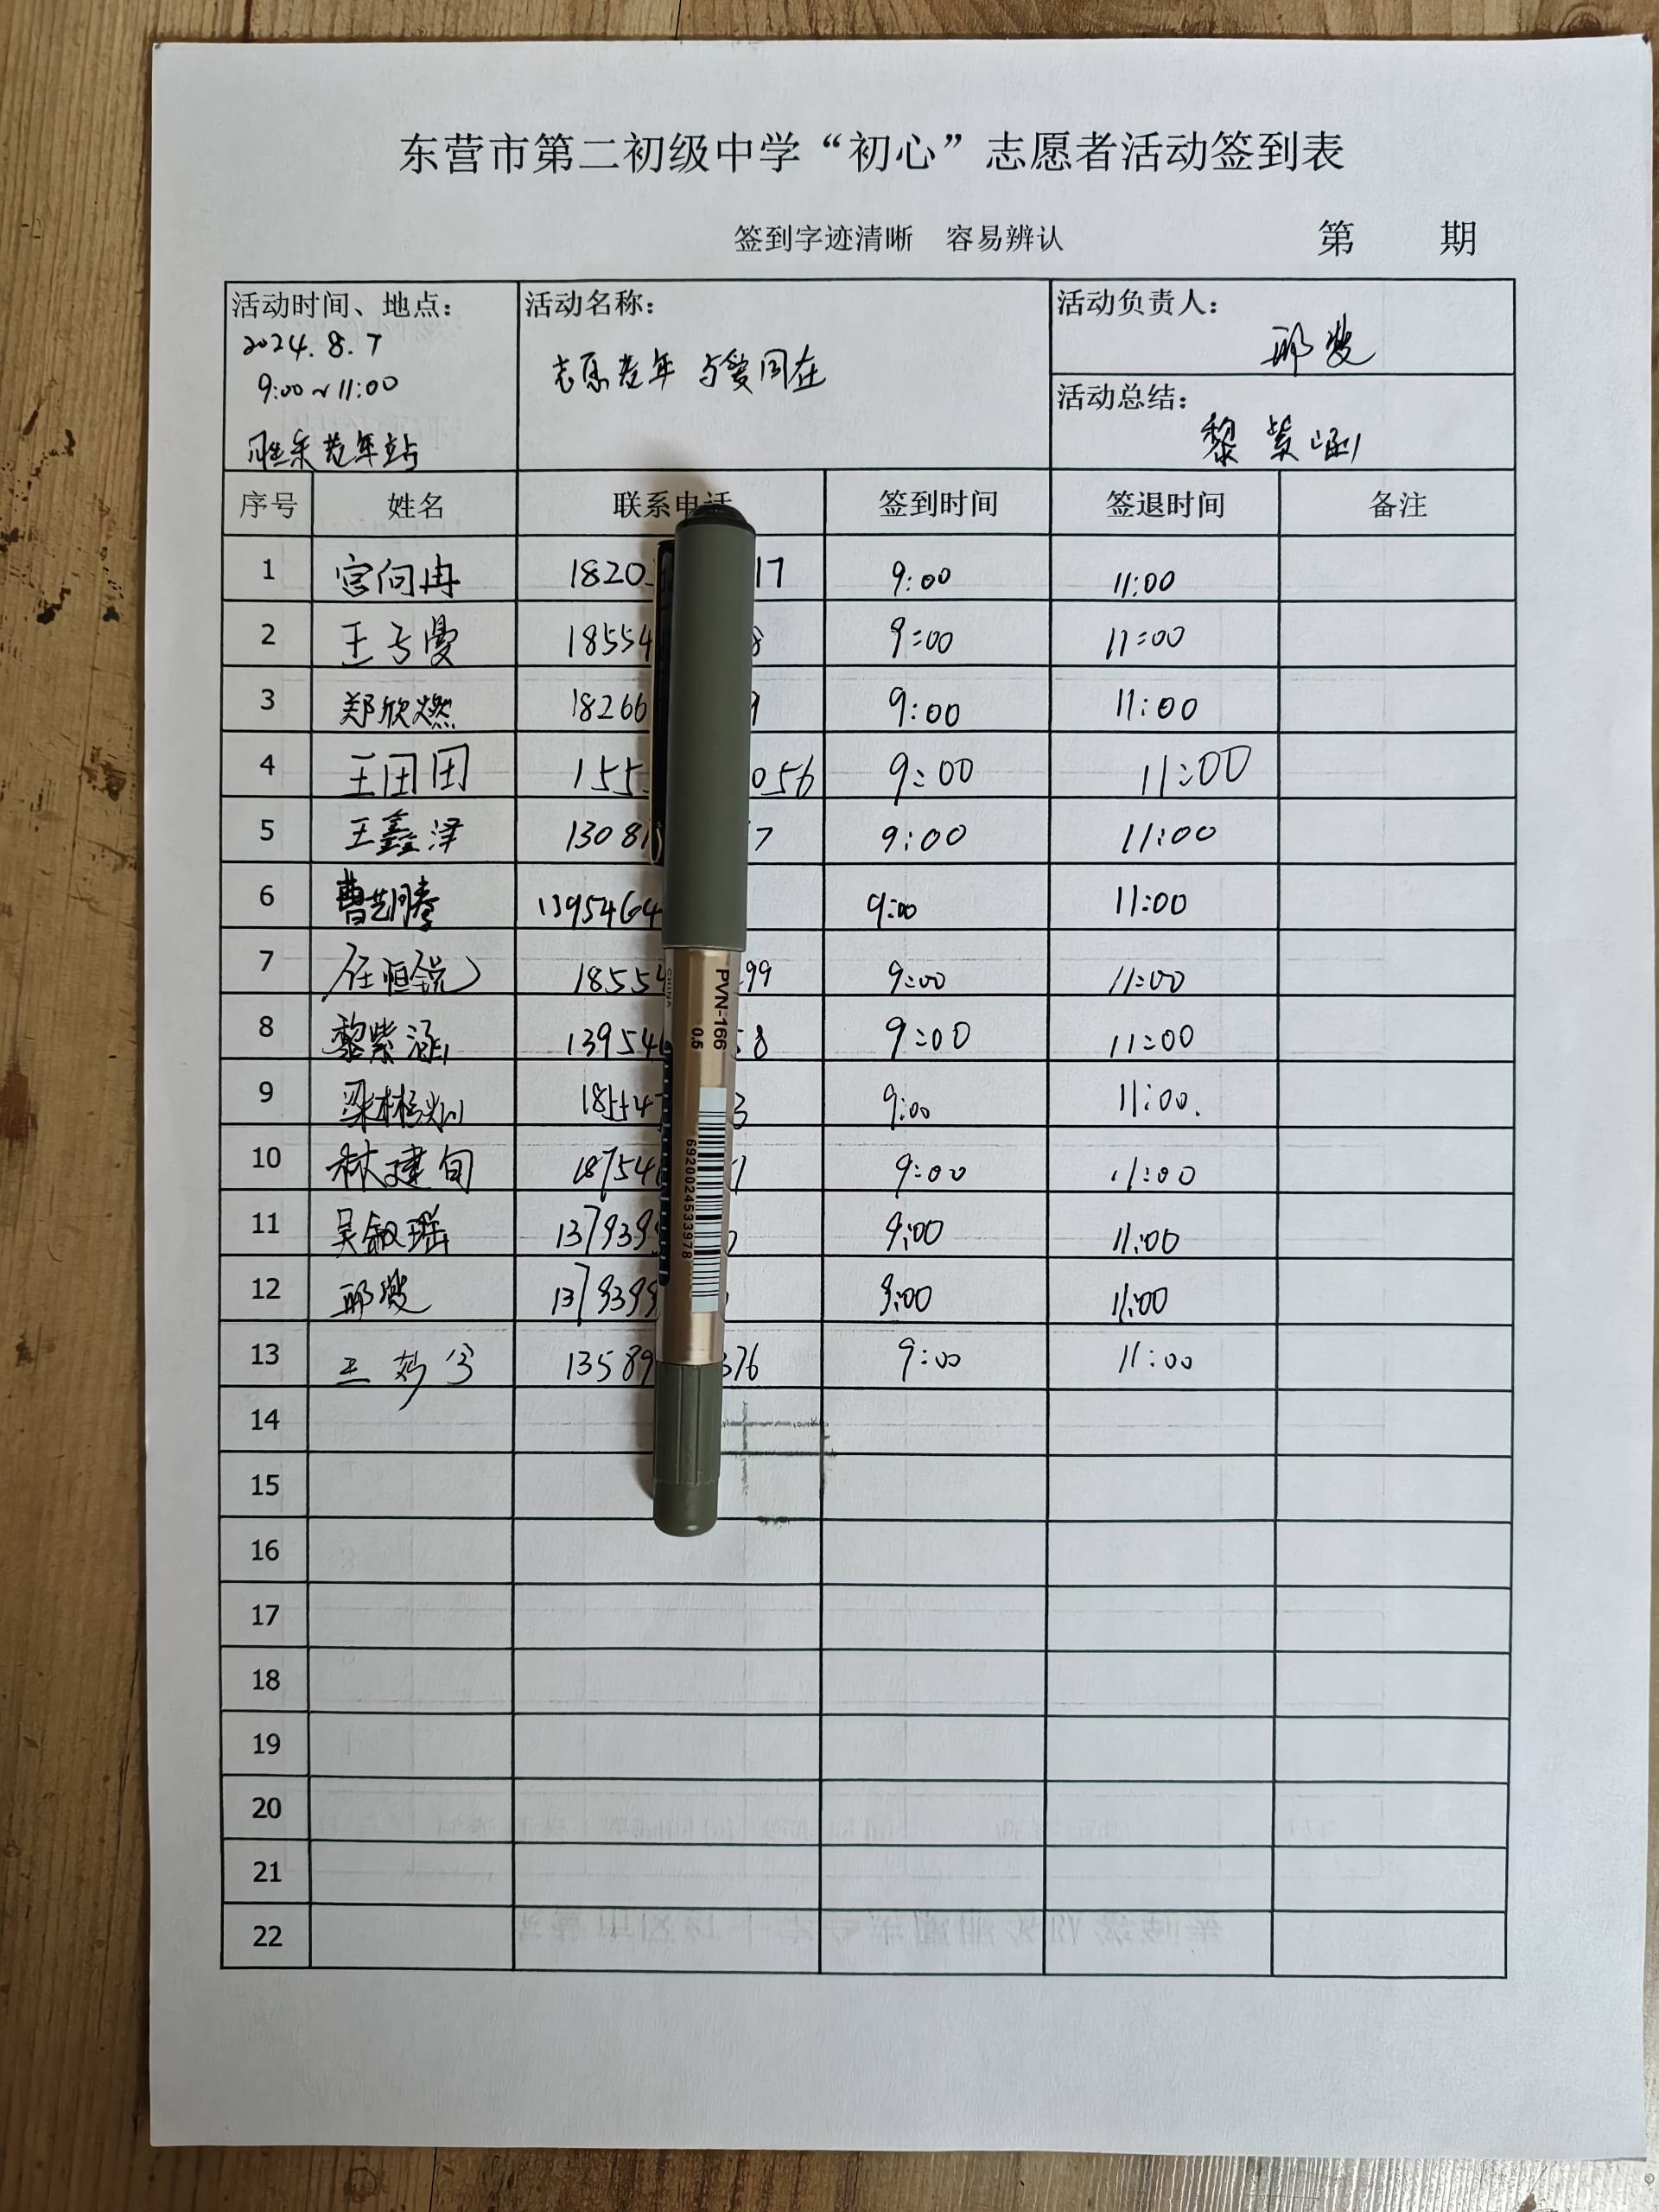 东营市第二初级中学“初心”志愿者活动签到表
签到字迹清晰 容易辨认 第 期
活动时间、地点：
2024.8.7
9:00~11:00
胜采老年站
活动名称：
志愿老年 与爱同在
活动负责人：
活动总结：
黎紫涵
序号 姓名 联系电话 签到时间 签退时间 备注
1 宫向冉 18203 17 9:00 11:00
2 王 曼 18554 8 9:00 11:00
3 郑欣燃 18266 9 9:00 11:00
4 王田田 155 056 9:00 11:00
5 王鑫泽 1308 7 9:00 11:00
6 曹 1395464 9:00 11:00
7 任恒锐 1855 99 9:00 11:00
8 黎紫涵 13954 58 9:00 11:00
9 梁 18554 3 9:00 11:00.
10 林建旬 18754 9:00 11:00
11 吴叙瑶 137939 9:00 11:00
12 1379399 9:00 11:00
13 王 13589 376 9:00 11:00
14
15
16
17
18
19
20
21
22
CHINA
PVN-166
0.5
6920024533978